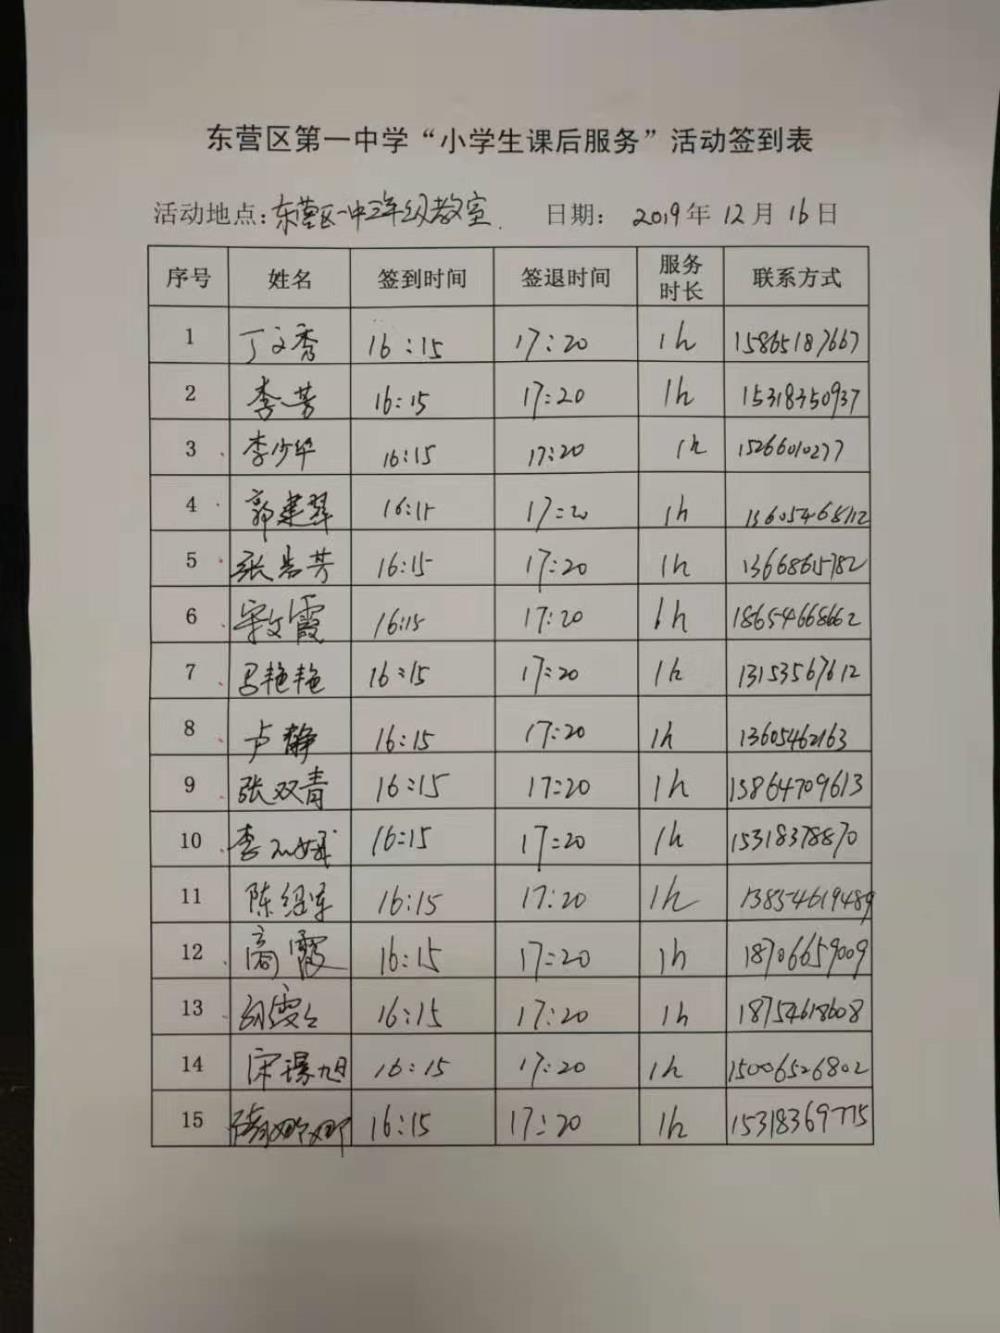 东营区第一中学“小学生课后服务”活动签到表
活动地点:东营区一中三年级教室. 日期: 2019年12月16日
序号 姓名 签到时间 签退时间 服务时长 联系方式
1 丁文秀 16:15 17:20 1h 15865187667
2 李芳 16:15 17:20 1h 15318350937
3 李少华 16:15 17:20 1h 15266010277
4 郭建翠 16:15 17:20 1h 13605468112
5 张岩芳 16:15 17:20 1h 13668615782
6 宋文霞 16:15 17:20 1h 18654668662
7 马艳艳 16:15 17:20 1h 13153567612
8 卢静 16:15 17:20 1h 13605462163
9 张双青 16:15 17:20 1h 15864709613
10 李 16:15 17:20 1h 15318378870
11 陈绍军 16:15 17:20 1h 13854619489
12 商霞 16:15 17:20 1h 18706659009
13 16:15 17:20 1h 18754618608
14 宋瑞旭 16:15 17:20 1h 15006526802
15 娜娜 16:15 17:20 1h 15318369775